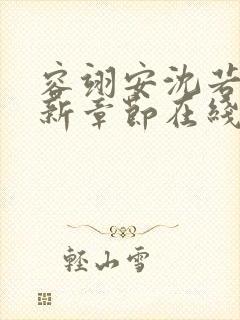 容翊安沈若
新章節在綫
輕山雪